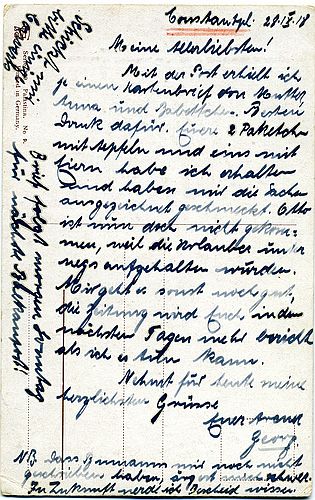 Constantpl. 28.IX.18
Meine Allerliebsten!
Mit der Post erhielt ich
je einen Kartenbrief von Mutter
Anna und Babettchen. Besten
Dank dafür. Euere 2 Paketchen
mit Äpfeln und eins mit
Eiern habe ich erhalten
und haben mir die Sachen
ausgezeichnet geschmeckt. Otto
ist nun doch nicht gekom-
men, weil die Urlauber unter
wegs aufgehalten wurden.
Mir geht es sonst noch gut,
die Zeitung wird Euch in den
nächsten Tagen mehr berichten
als ich es tun kann.
Nehmt für heute meine
herzlichsten Grüsse
Euer treuer
Georg
NB. Dass mir noch nicht
geschrieben haben, ärgert mich schwer.
In Zukunft werde ich Bescheid wissen.
Brief folgt morgen Sonntag
Schickt mir
bitte
Palästina, No. 2.
in Germany.